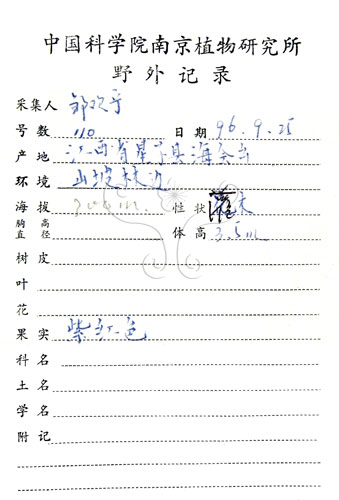 中国科学院南京植物研究所
野外记录
采集人
号数 110 日期 96.9.25
产地 江西省星子县海会
环境 山坡林边
海拔 200m. 性状 灌木
胸高直径 体高 3.5m
树皮
叶
花
果实 紫红色
科名
土名
学名
附记